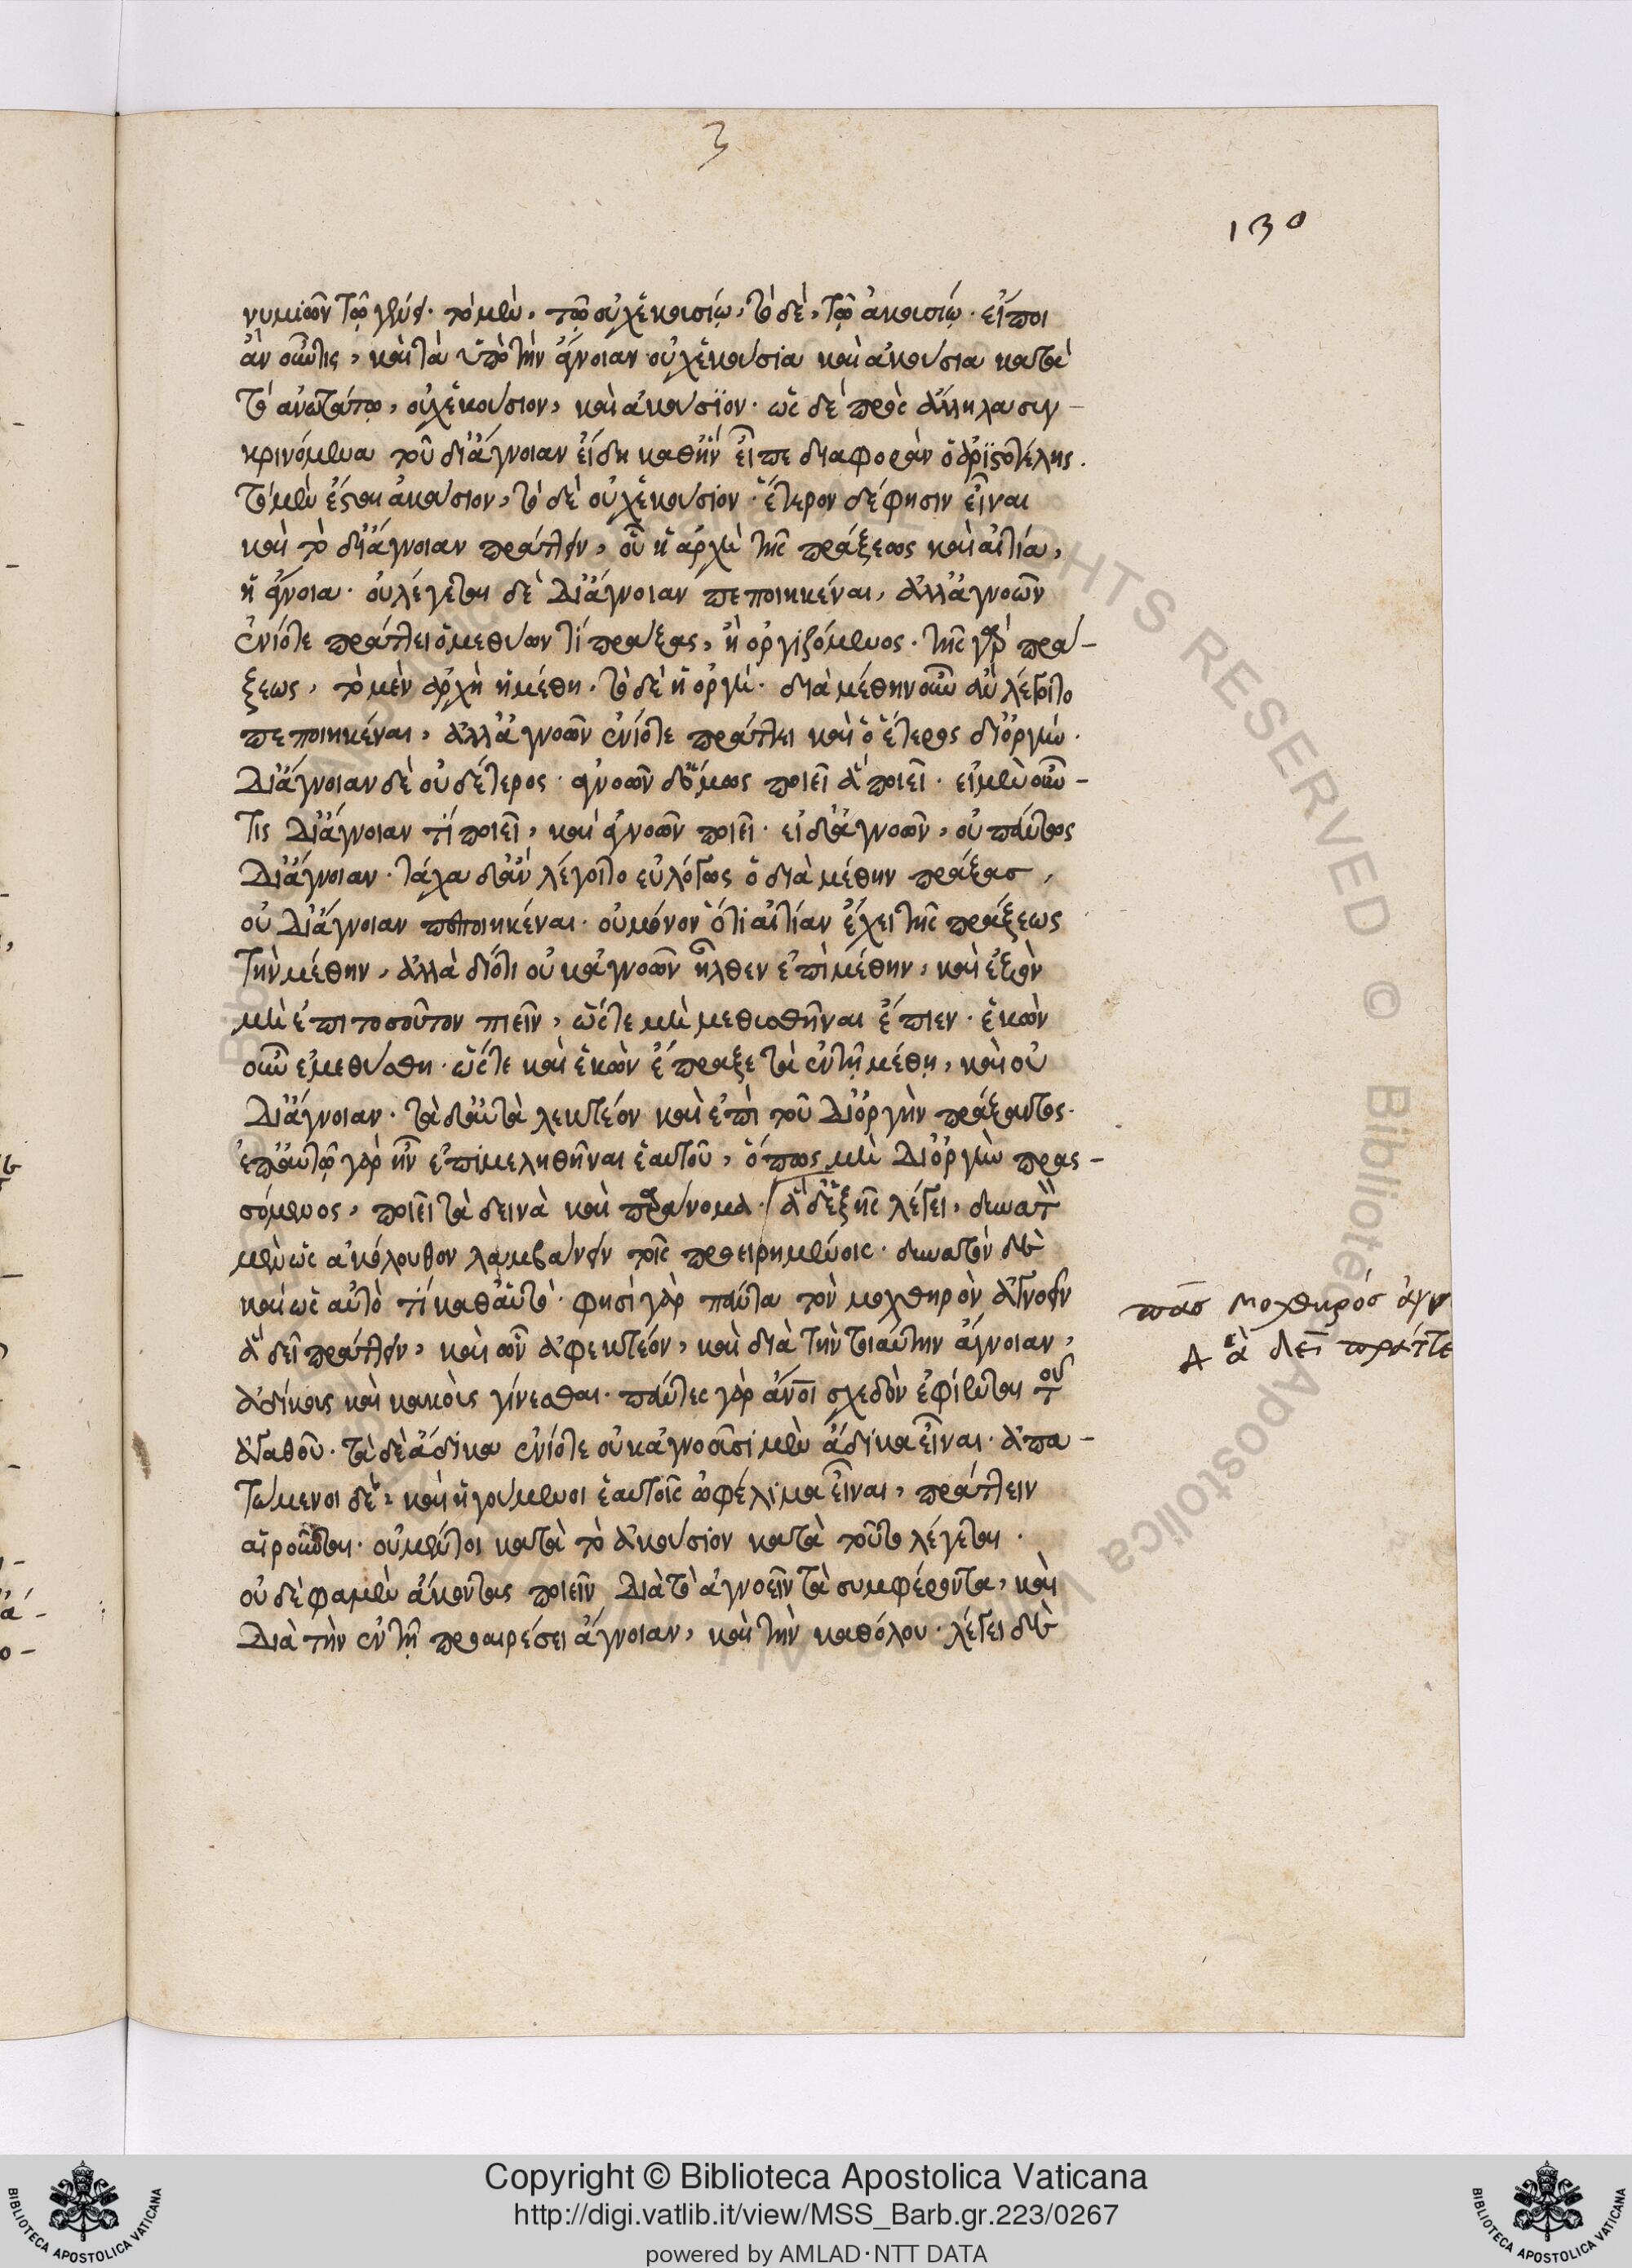 3
130
νυμιῶν τῷ γένει· τὸ μὲν, τῷ οὐχ ἑκουσίῳ, τὸ δὲ, τῷ ἀκουσίῳ· εἴποι
ἂν οὖν τις, καὶ τὰ ὑπὸ τὴν ἄγνοιαν οὐχ ἑκούσια καὶ ἀκούσια κατὰ
τὸ ἀνωτάτω, οὐχ ἑκούσιον, καὶ ἀκούσϊον· ὡς δὲ πρὸς ἄλληλα συγ-
κρινόμενα τοῦ δι' ἄγνοιαν εἴδη καθ' ἣν εἶπε διαφορὰν ὁ ἀρϊστοτέλης.
τὸ μὲν ἔσται ἀκούσιον, τὸ δὲ οὐχ ἑκούσιον· ἕτερον δέ φησιν εἶναι
καὶ τὸ δι' ἄγνοιαν πράττειν, οὗ ἡ ἀρχὴ τῆς πράξεως καὶ αἰτία,
ἡ ἄγνοια· οὐ λέγεται δὲ δι' ἄγνοιαν πεποιηκέναι, ἀλλ' ἀγνοῶν
ἐνίοτε πράττει ὁ μεθύων τί πράξας, ἢ ὀργιζόμενος· τῆς γὰρ πρά-
ξεως, τὸ μὲν ἀρχὴ ἡ μέθη· τὸ δὲ ἡ ὀργή· διὰ μέθην οὖν ἂν λέγοιτο
πεποιηκέναι, ἀλλ' ἀγνοῶν ἐνίοτε πράττει καὶ ὁ ἕτερος δι' ὀργήν·
δι' ἄγνοιαν δὲ οὐδέτερος· ἀγνοῶν δ' ὅμως ποιεῖ ἃ ποιεῖ· εἰ μὲν οὖν-
τις δι' ἄγνοιαν τί ποιεῖ, καὶ ἀγνοῶν ποιεῖ· εἰ δ' ἀγνοῶν, οὐ πάντως
δι' ἄγνοιαν· τάχα δ' ἂν λέγοιτο εὐλόγως ὁ διὰ μέθην πράξας,
οὐ δι' ἄγνοιαν πεποιηκέναι· οὐ μόνον ὅτι αἰτίαν ἔχει τῆς πράξεως
τὴν μέθην, ἀλλὰ διότι οὐκ ἀγνοῶν ἦλθεν ἐπὶ μέθην, καὶ ἐξὸν
μὴ ἐπιτοσοῦτον πιεῖν, ὥστε μὴ μεθυσθῆναι ἔπιεν· ἑκὼν
οὖν ἐμεθύσθη· ὥστε καὶ ἑκὼν ἔπραξε τὰ ἐν τῇ μέθῃ, καὶ οὐ
δι' ἄγνοιαν· τὰ δ' αὐτὰ λεκτέον καὶ ἐπὶ τοῦ δι' ὀργὴν πράξαντος·
ἐπ' αὐτῷ γὰρ ἦν ἐπιμεληθῆναι ἑαυτοῦ, ὅπως μὴ δι' ὀργὴν πρασ-
σόμενος, ποιεῖ τὰ δεινὰ καὶ παράνομα· ἃ δ' ἑξῆς λέγει, δυνατὸν
μὲν ὡς ἀκόλουθον λαμβάνειν τοῖς προειρημένοις· δυνατὸν δὲ
καὶ ὡς αὐτό τι καθ' αὑτό· φησὶ γὰρ πάντα τὸν μοχθηρὸν ἀγνοεῖν
ἃ δεῖ πράττειν, καὶ ὧν ἀφεκτέον, καὶ διὰ τὴν τοιαύτην ἄγνοιαν,
ἀδίκους καὶ κακοὺς γίνεσθαι· πάντες γὰρ ἄνοι σχεδὸν ἐφίενται τοῦ
ἀγαθοῦ· τὰ δὲ ἄδικα ἐνίοτε οὐκ ἀγνοοῦσι μὲν ἄδικα εἶναι· ἀπα-
τώμενοι δὲ, καὶ ἡγούμενοι ἑαυτοῖς ὠφέλιμα εἶναι, πράττειν
αἱροῦνται· οὐ μέντοι κατὰ τὸ ἀκούσιον κατὰ τοῦτο λέγεται·
οὐδέ φαμεν ἄκοντας ποιεῖν διὰ τὸ ἀγνοεῖν τὰ συμφέροντα, καὶ
διὰ τὴν ἐν τῇ προαιρέσει ἄγνοιαν, καὶ τὴν καθόλου· λέγει δὲ
πᾶς μοχθηρός ἀγν
ἃ δεῖ πράττε
Copyright © Biblioteca Apostolica Vaticana
http://digi.vatlib.it/view/MSS_Barb.gr.223/0267
powered by AMLAD·NTT DATA